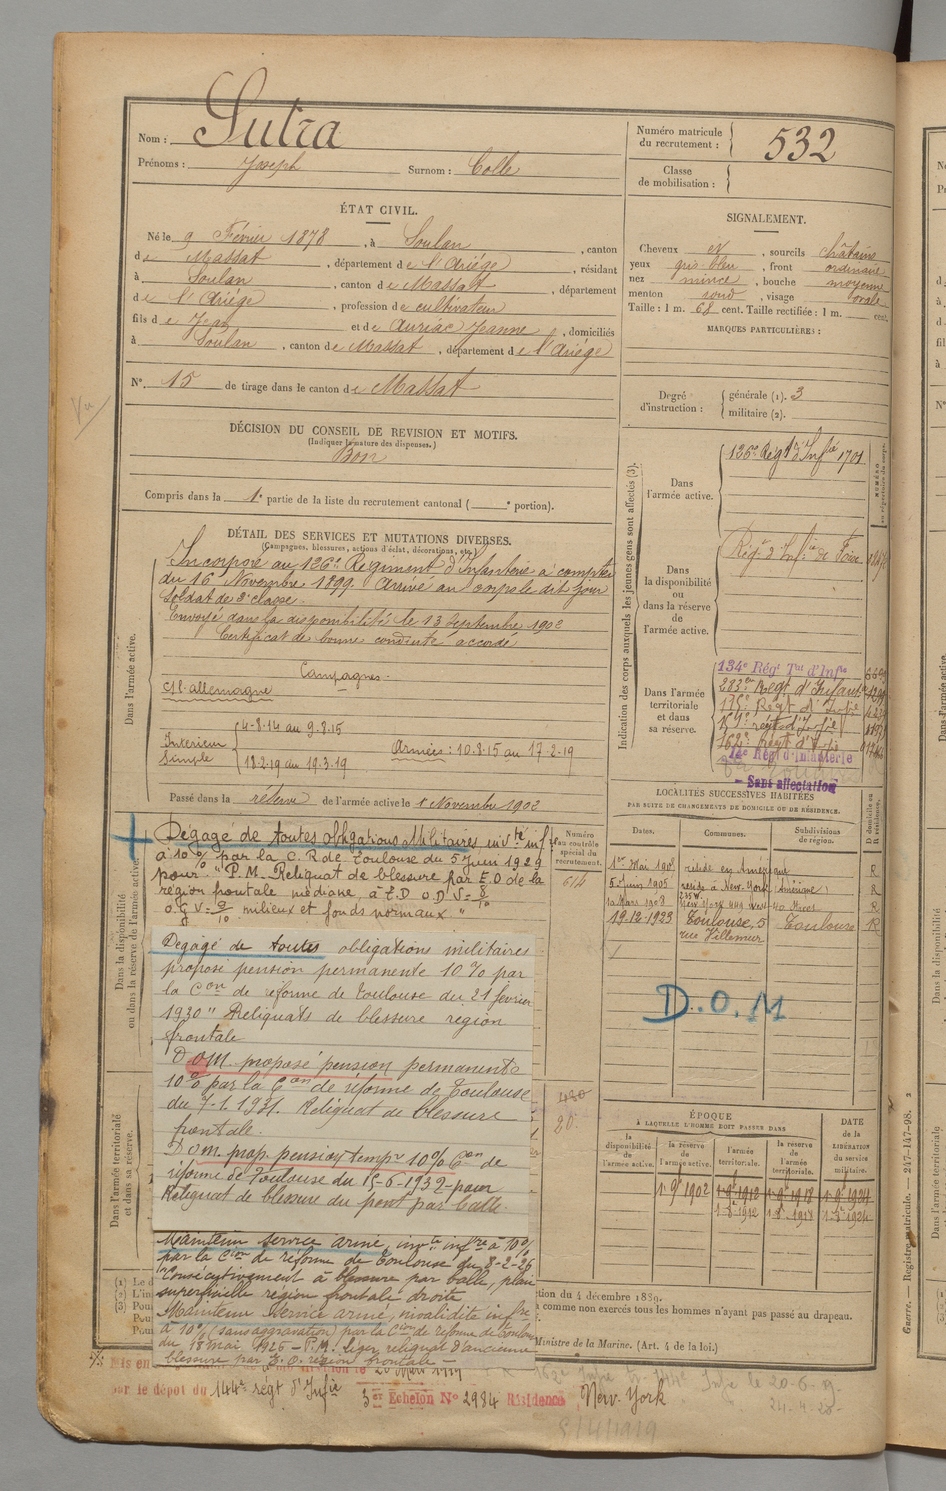 Nom : Sutra
Prénoms : Joseph Surnom : Colle
Numéro matricule du recrutement : 532
Classe de mobilisation :
ÉTAT CIVIL.
Né le 9 Février 1878, à Soulan, canton
de Massat, département de l'Ariége, résidant
à Soulan, canton de Massat, département
de l'Ariége, profession de cultivateur
fils de Jean et de Auriac Jeanne, domiciliés
à Soulan, canton de Massat, département de l'Ariége
N° 15 de tirage dans le canton de Massat
SIGNALEMENT.
Cheveux et, sourcils châtains
yeux gris bleu, front ordinaire
nez mince, bouche moyenne
menton rond, visage ovale
Taille : 1 m. 68 cent. Taille rectifiée : 1 m. cent.
MARQUES PARTICULIÈRES :
Degré d'instruction : générale (1). 3
militaire (2).
DÉCISION DU CONSEIL DE REVISION ET MOTIFS.
(Indiquer la nature des dispenses.)
Bon
Compris dans la 1e partie de la liste du recrutement cantonal ( e portion).
DÉTAIL DES SERVICES ET MUTATIONS DIVERSES.
(Campagnes, blessures, actions d'éclat, décorations, etc.)
Dans l'armée active.
Incorporé au 126e Régiment d'Infanterie à compter
du 16 Novembre 1899. Arrivé au corps le dit jour
Soldat de 2e classe.
Envoyé dans la disponibilité le 13 Septembre 1902
Certificat de bonne conduite accordé
Campagnes.
Cl. allemagne
Intérieur Simple
4-8-14 au 9.8.15
18-2-19 au 19.3.19
Armées : 10.8.15 au 17-2-19
Passé dans la réserve de l'armée active le 1 Novembre 1902
Indication des corps auxquels les jeunes gens sont affectés (3).
Dans l'armée active.
126e Régt d'Inftie 1701
Dans la disponibilité ou dans la réserve de l'armée active.
Régt d'Infie de Foix
Dans l'armée territoriale et dans sa réserve.
134e Régt Tal d'Infie
283e Regt d'Infant
175e Regt d'Infie
159e régt d'Infie
162e régt d'Infie
14e Régt d'infanterie
Sans affectation
LOCALITÉS SUCCESSIVES HABITÉES
PAR SUITE DE CHANGEMENTS DE DOMICILE OU DE RÉSIDENCE.
Dates. Communes. Subdivisions de région. D domicile ou R résidence.
réside en Amérique R
5 Juin 1905 réside à New-York (Amérique) R
R
19.12-1923 Toulouse, 5 rue Villemur Toulouse R
D.O.M
Numéro au contrôle spécial du recrutement.
614
Dans la disponibilité ou dans la réserve de l'armée active.
Dégagé de toutes obligations Militaires invté infre
à 10% par la C. R. de Toulouse du 5 Juin 1929
pour : "P.M. Reliquat de blessure par E.O de la
région frontale médiane, à E.D O D V = 8/10
O.G V = 9/10 milieux et fonds normaux "
Dégagé de toutes obligations militaires
proposé pension permanente 10% par
la Con de réforme de Toulouse du 21 février
1930 "Reliquats de blessure région
frontale
D O M. proposé pension permanente
10% par la Con de réforme de Toulouse
du 7-1. 1931. Reliquat de blessure
frontale.
D O M. prop. pension tempre 10% Con de
réforme de Toulouse du 15-6-1932- pour
Reliquat de blessure du front par balle.
Dans l'armée territoriale et dans sa réserve.
Maintenu service armé, invté infre à 10%
par la Con de réforme de Toulouse du 8-2-26
Consécutivement à blessure par balle, plaie
superficielle région frontale droite
Maintenu service armé, invalidité infre
à 10% (sans aggravation) par la Con de réforme de Toulouse
du 18 mai 1926 - P.M. léger reliquat d'ancienne
blessure par E.O. région frontale -
ÉPOQUE
À LAQUELLE L'HOMME DOIT PASSER DANS
la disponibilité de l'armée active. la réserve de l'armée active. l'armée territoriale. la réserve de l'armée territoriale.
DATE de la LIBÉRATION du service militaire.
1-9bre 1902 1-9-1912 1-9-1918 1-9-1924
1-8-1912 1-8-1918 1-8-1924
ction du 4 décembre 1889.
à comme non exercés tous les hommes n'ayant pas passé au drapeau.
Ministre de la Marine. (Art. 4 de la loi.)
Mis en
par le dépot du 144e régt d'Infie
3er Echelon N° 2984 Résidence New-York
Guerre. — Registre matricule. — 247-147-98. 2